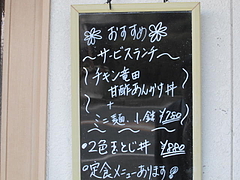 おすすめ
～サービスランチ～
チキン竜田
甘酢あんかけ丼
+
ミニ麺、小鉢 ¥750
•2色まとじ丼 ¥880
•定食メニューあります!